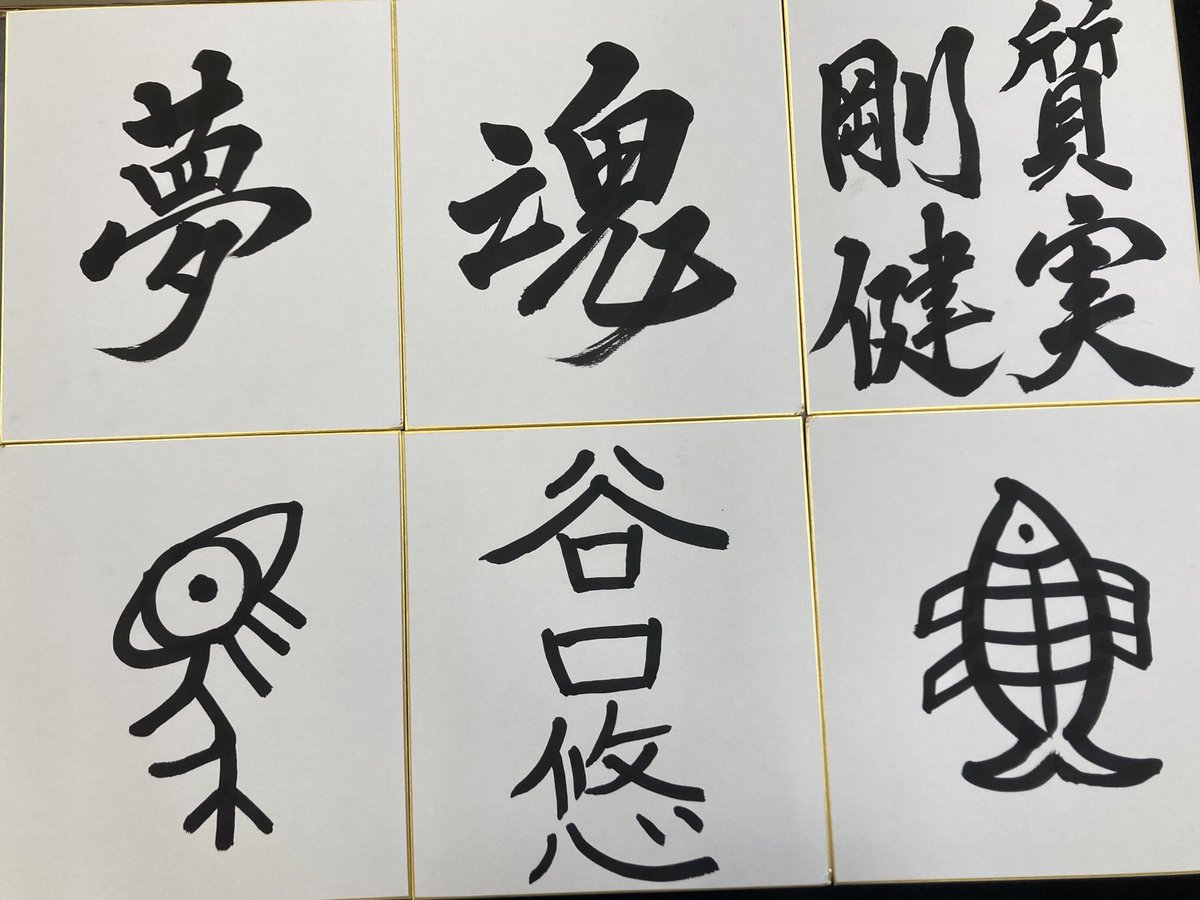 夢
魂
質実
剛健
谷口悠